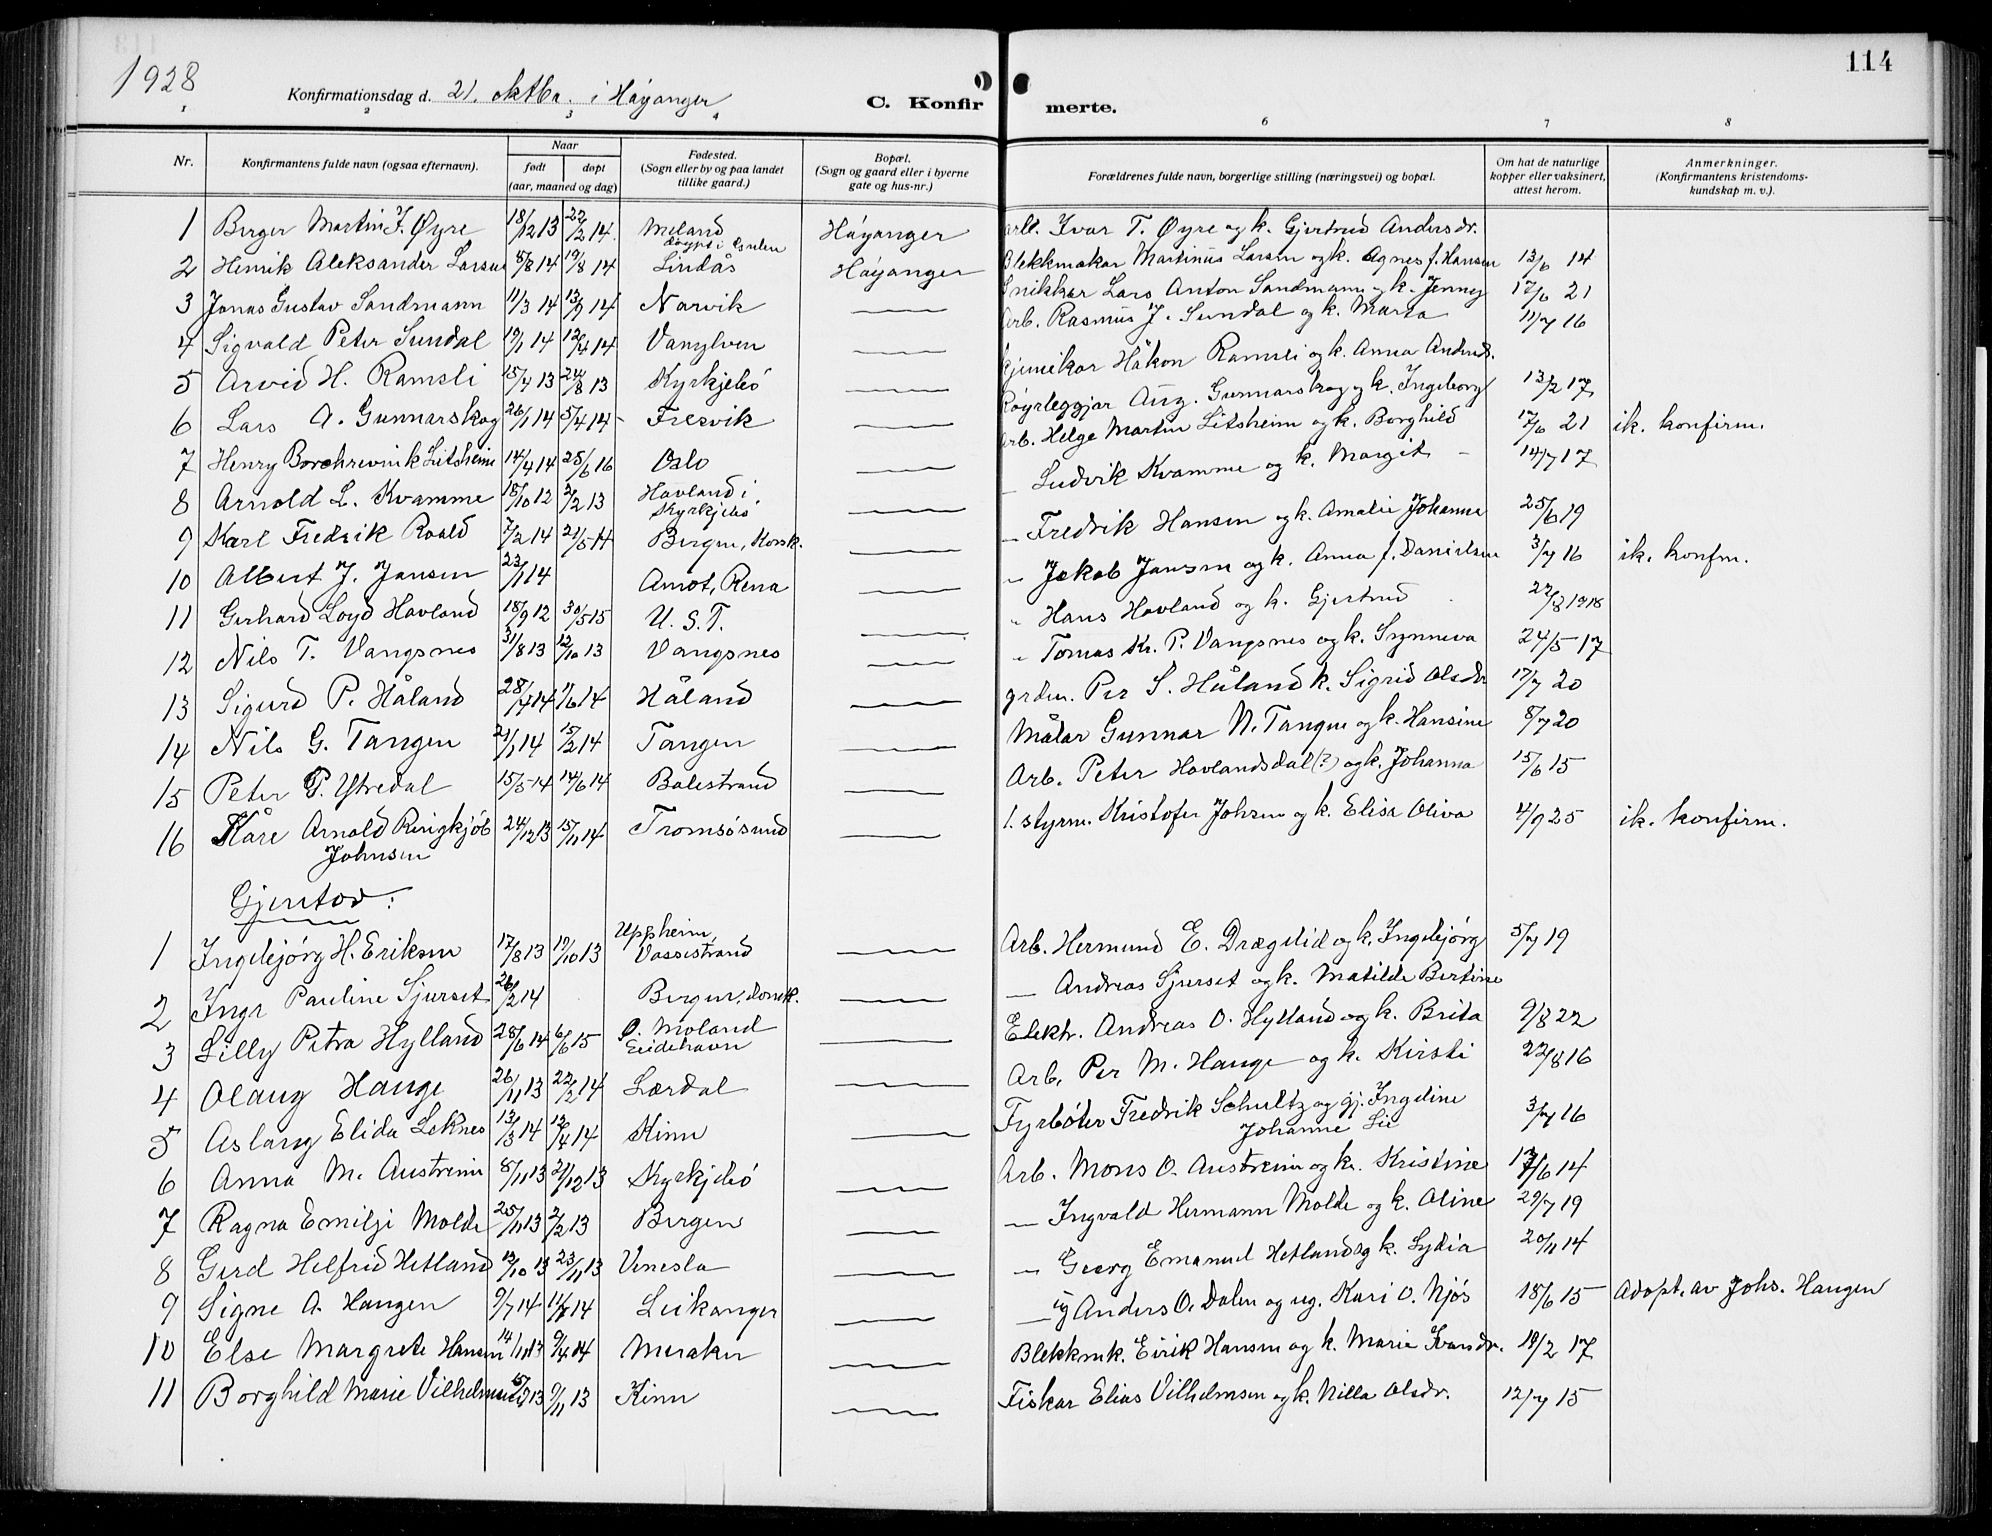 114
1928
Konfirmationsdag d. 21. oktbr. i Høyanger
C. Konfirmerte.
1 2 3 4 6 7 8
Nr. Konfirmantens fulde navn (ogsaa efternavn). Naar født døpt (aar, maaned og dag) Fødested. (Sogn eller by og paa landet tillike gaard.) Bopæl. (Sogn og gaard eller i byerne gate og hus-nr.) Forældrenes fulde navn, borgerlige stilling (næringsvei) og bopæl. Om hat de naturlige kopper eller vaksinert, attest herom. Anmerkninger. (Konfirmantens kristendomskundskap m. v.).
1 Birger Martin J. Øyre 18/12 13 22/2 14. Meland døypt i Gulen Høyanger arb. Ivar T. Øyre og k. Gjertrud Andersdr.
2 Henrik Aleksander Larsen 8/8 14 19/8 14 Lindås Høyanger Blekkmakar Martinus Larsen og k. Agnes f. Hansen 13/6 14
3 Jonas Gustav Sandmann 11/3 14 13/9 14 Narvik — Snikkar Lars Anton Sandmann og k. Jenny 17/6 21
4 Sigvald Peter Sundal 19/1 14 12/4 14 Vanylven — Arb. Rasmus J. Sundal og k. Marta 11/7 16
5 Arvid H. Ramsli 15/7 13 24/8 13 Kyrkjebø — Håkon Ramsli og k. Anna Andersd.
6 Lars A. Gunnarskog 26/1 14 5/4 14 Fresvik — Røyrleggjar Aug. Gunnarskog og k. Ingeborg 13/2 17
7 Henry Borchrevink Litsheim 14/4 14 25/6 16 Oslo — Arb. Helge Martin Litsheim og k. Borghild 17/6 21 ik. konfirm.
8 Arnold L. Kvamme 18/10 12 2/2 13 Hovland i Kyrkjebø — — Ludvik Kvamme og k. Margit 14/7 17
9 Karl Fredrik Roald 7/2 14 21/5 14 Bergen, Korsk. — — Fredrik Hansen og k. Amalie Johanne 25/6 19
10 Albert J. Jansen 23/1 14 Amot, Rena — „ Jakob Jansen og k. Anna f. Danielsen 3/7 16 ik. konfm.
11 Gerhard Loyd Hovland 18/9 12 30/5 15 U. S. T. — „ Hans Hovland og k. Gjertrud 22/8 1918
12 Nils T. Vangsnes 31/8 13 12/10 13 Vangsnes — „ Tomas Kr. P. Vangsnes og k. Synneva 24/5 17
13 Sigurd P. Håland 28/4 14 1/6 14 Håland — Per S. Håland k. Sigrid Olsdr 17/7 20
14 Nils G. Tangen 21/1 14 15/2 14 Tangen — Målar Gunnar N. Tangen og k. Hansine 8/7 20
15 Peter P. Ytredal 15/5 14 14/6 14 Balestrand — Arb. Peter Hovlandsdal (?) og k. Johanna 15/6 15
16 Kåre Arnold Ringkjøb Johnsen 24/12 13 15/11 14 Tromsøsund — 1. styrm. Kristofer Johsen og k. Elisa Oliva 4/9 25 ik. konfirm.
Gjentor:
1 Ingebjørg H. Eriksen 17/8 13 19/10 13 Uppheim, Vossestrand — Arb. Hermund E. Drægelid og k. Ingebjørg 5/7 19
2 Inga Pauline Sjurset 26/2 14 Bergen, Domk. — — Andreas Sjurset og k. Matilde Bertine
3 Lilly Petra Hylland 28/6 14 6/6 15 Ø. Moland Eidehavn — Elektr. Andreas O. Hylland og k. Brita 9/8 22
4 Olaug Hauge 26/11 13 22/2 14 Lærdal — Arb. Per M. Hauge og k. Kirsti 22/8 16
5 Aslaug Elida Leknes 13/3 14 13/4 14 Kinn — Fyrbøter Fredrik Schultz og gj. Ingeline Johanne Lie 3/7 16
6 Anna M. Austreim 8/11 13 21/12 13 Kyrkjebø — Arb. Mons O. Austreim og k. Kristine 13/6 14
7 Ragna Emilji Molde 25/11 13 2/2 13 Bergen — — Ingvald Hermann Molde og k. Oline 29/7 19
8 Gerd Helfrid Hetland 12/10 13 23/11 13 Venesla — — Georg Emanuel Hetland og k. Lydia 20/11 14
9 Signe A. Haugen 9/7 14 11/8 14 Leikanger — — ug Anders O. Dalen og ug. Kari O. Njøs 18/6 15 Adopt. av Johs. Haugen
10 Else Margrete Hansen 14/11 13 9/4 14 Meraker — Blekkmk. Eirik Hansen og k. Marie Ivarsdr. 19/2 17
11 Borghild Marie Vilhelmsen 13 9/11 13 Kinn — Fiskar Elias Vilhelmsen og k. Nilla Olsdr. 12/7 15